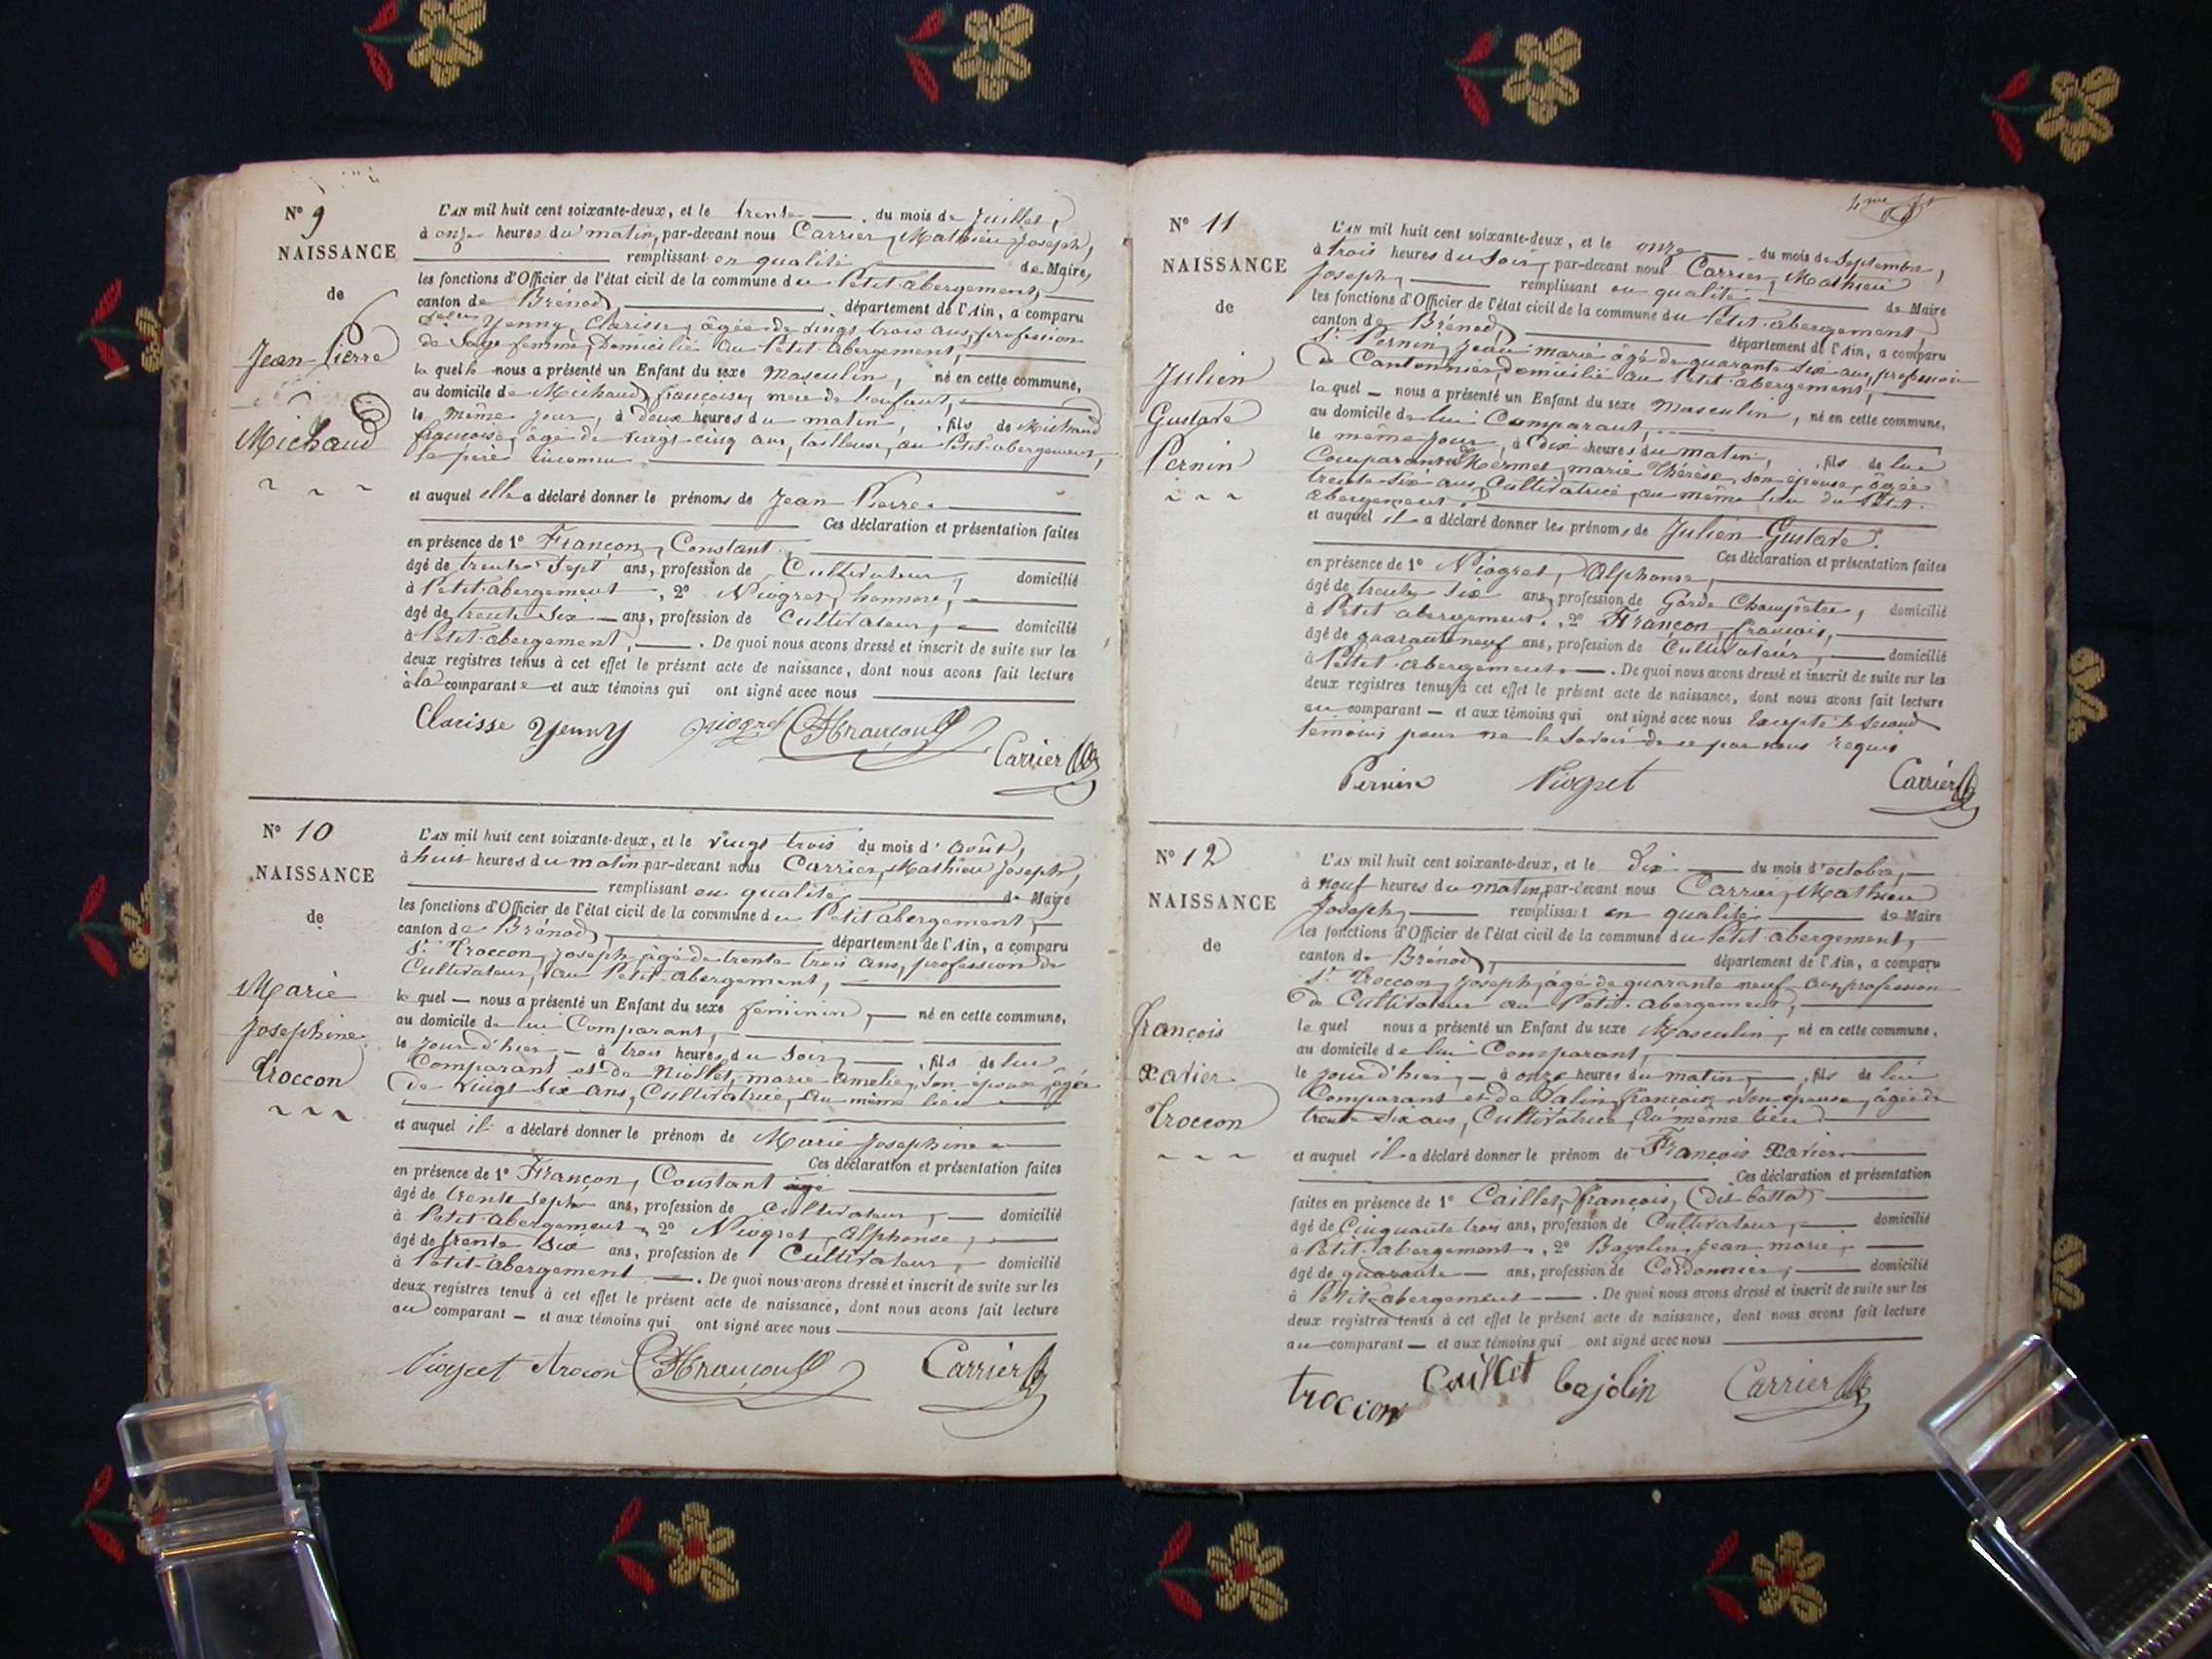 N° 9
NAISSANCE
de
Jean Pierre
Michaud
L'AN mil huit cent soixante-deux, et le trente du mois de Juillet,
à onze heures du matin, par-devant nous Carrier, Mathieu Joseph,
remplissant en qualité de Maire,
les fonctions d'Officier de l'état civil de la commune du Petit-abergement,
canton de Brénod, département de l'Ain, a comparu
Yenny, Clarisse, âgée de vingt trois ans, profession
de Sage femme, Domiciliée au Petit-abergement,
la quelle nous a présenté un Enfant du sexe Masculin, né en cette commune,
au domicile de Michaud, françoise, mère de l'enfant,
le même jour, à deux heures du matin, fils de Michaud
françoise, âgé de vingt-cinq ans, tailleuse, au Petit-abergement,
le père inconnu
et auquel elle a déclaré donner le prénoms de Jean Pierre.
Ces déclaration et présentation faites
en présence de 1° Françon, Constant,
âgé de trente Sept ans, profession de Cultivateur, domicilié
à Petit-abergement, 2° Niogret, honnoré,
âgé de trente Six ans, profession de Cultivateur, domicilié
à Petit-abergement, . De quoi nous avons dressé et inscrit de suite sur les
deux registres tenus à cet effet le présent acte de naissance, dont nous avons fait lecture
à la comparante et aux témoins qui ont signé avec nous
Clarisse Yenny Niogret CFrançon Carrier
N° 10
NAISSANCE
de
Marie
Josephine
Troccon
L'AN mil huit cent soixante-deux, et le vingt trois du mois d'Août,
à huit heures du matin par-devant nous Carrier, Mathieu Joseph,
remplissant en qualité, de Maire
les fonctions d'Officier de l'état civil de la commune du Petit abergement,
canton de Brénod, département de l'Ain, a comparu
Sr. Troccon, Joseph, âgé de trente trois ans, profession de
Cultivateur, au Petit-abergement,
le quel nous a présenté un Enfant du sexe féminin, né en cette commune,
au domicile de lui Comparant,
le jour d'hier, à trois heures du Soir, fils de lui
Comparant et de Niollet, marie Amelie, Son épouse, âgée
de vingt Six ans, Cultivatrice, au même lieu
et auquel il a déclaré donner le prénom de Marie Josephine
Ces déclaration et présentation faites
en présence de 1° Françon, Constant
âgé de trente sept ans, profession de Cultivateur, domicilié
à Petit-abergement, 2° Niogret, Alphonse,
âgé de trente Six ans, profession de Cultivateur, domicilié
à Petit-abergement . De quoi nous avons dressé et inscrit de suite sur les
deux registres tenus à cet effet le présent acte de naissance, dont nous avons fait lecture
au comparant et aux témoins qui ont signé avec nous
Niogret trocon CFrançon Carrier
N° 11
NAISSANCE
de
Julien
Gustave
Pernin
L'AN mil huit cent soixante-deux, et le onze du mois de Septembre,
à trois heures du Soir, par-devant nous Carrier, Mathieu
Joseph, remplissant en qualité de Maire
les fonctions d'Officier de l'état civil de la commune du Petit-abergement,
canton de Brénod, département de l'Ain, a comparu
Sr. Pernin, Jean marie âgé de quarante six ans, profession
de Cantonnier, domicilié au Petit-abergement,
le quel nous a présenté un Enfant du sexe masculin, né en cette commune,
au domicile de lui Comparant,
le même jour, à dix heures du matin, fils de lui
Comparant et de marie Thérèse, son épouse, âgée
trente-six ans, Cultivatrice, au même lieu du Petit-
abergement.
et auquel il a déclaré donner les prénoms de Julien Gustave.
Ces déclaration et présentation faites
en présence de 1° Niogret, Alphonse,
âgé de trente six ans, profession de Garde Champêtre, domicilié
à Petit abergement, 2° Françon, françois,
âgé de quarante neuf ans, profession de Cultivateur, domicilié
à Petit-abergement. . De quoi nous avons dressé et inscrit de suite sur les
deux registres tenus à cet effet le présent acte de naissance, dont nous avons fait lecture
au comparant et aux témoins qui ont signé avec nous Excepté le second
témoins pour ne le savoir de ce par nous requis
Pernin Niogret Carrier
N° 12
NAISSANCE
de
françois
Xavier
Troccon
L'AN mil huit cent soixante-deux, et le Dix du mois d'octobre,
à neuf heures du matin, par-devant nous Carrier, Mathieu
Joseph, remplissant en qualité de Maire
les fonctions d'Officier de l'état civil de la commune du Petit-abergement,
canton de Brénod, département de l'Ain, a comparu
Sr. Troccon, Joseph, âgé de quarante neuf ans, profession
de Cultivateur au Petit-abergement,
le quel nous a présenté un Enfant du sexe Masculin, né en cette commune,
au domicile de lui Comparant,
le jour d'hier, à onze heures du matin, fils de lui
Comparant et de françoise, Son épouse, âgée de
trente Six ans, Cultivatrice, au même lieu
et auquel il a déclaré donner le prénom de François Xavier
Ces déclaration et présentation
faites en présence de 1° Caillet, françois,
âgé de Cinquante trois ans, profession de Cultivateur, domicilié
à Petit-abergement, 2° Bajolin, Jean marie,
âgé de quarante ans, profession de Cordonnier, domicilié
à Petit-abergement . De quoi nous avons dressé et inscrit de suite sur les
deux registres tenus à cet effet le présent acte de naissance, dont nous avons fait lecture
au comparant et aux témoins qui ont signé avec nous
troccon Caillet bajolin Carrier